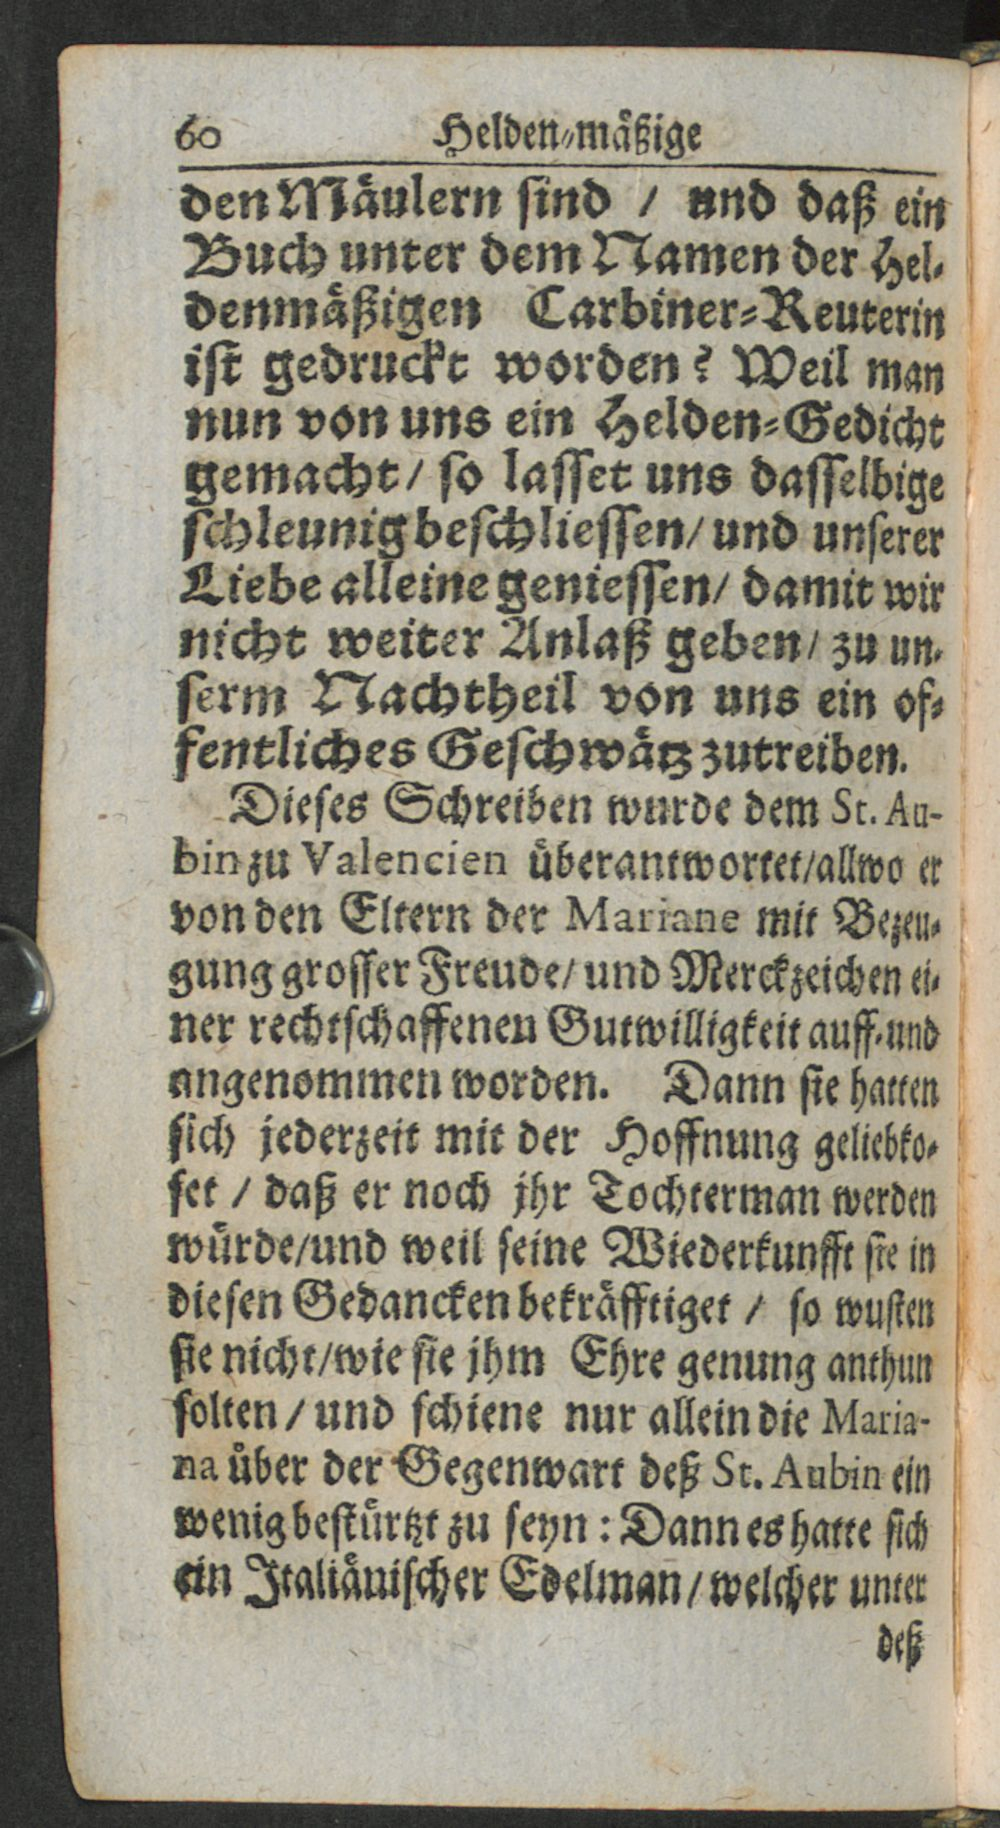 60 Helden-mäßige
den Mäulern sind / und daß ein
Buch unter dem Namen der Hel-
denmäßigen Carbiner-Reuterin
ist gedruckt worden? Weil man
nun von uns ein Helden-Gedicht
gemacht / so lasset uns dasselbige
schleunig beschliessen / und unserer
Liebe alleine geniessen / damit wir
nicht weiter Anlaß geben / zu un-
serm Nachtheil von uns ein of-
fentliches Geschwätz zutreiben.
Dieses Schreiben wurde dem St. Au-
bin zu Valencien überantwortet / allwo er
von den Eltern der Mariane mit Bezeu-
gung grosser Freude / und Merckzeichen ei-
ner rechtschaffenen Gutwilligkeit auff- und
angenommen worden. Dann sie hatten
sich jederzeit mit der Hoffnung geliebko-
set / daß er noch jhr Tochterman werden
würde / und weil seine Wiederkunfft sie in
diesen Gedancken bekräfftiget / so wusten
sie nicht / wie sie jhm Ehre genung anthun
solten / und schiene nur allein die Maria-
na über der Gegenwart deß St. Aubin ein
wenig bestürtzt zu seyn: Dann es hatte sich
ein Italiänischer Edelman / welcher unter
deß